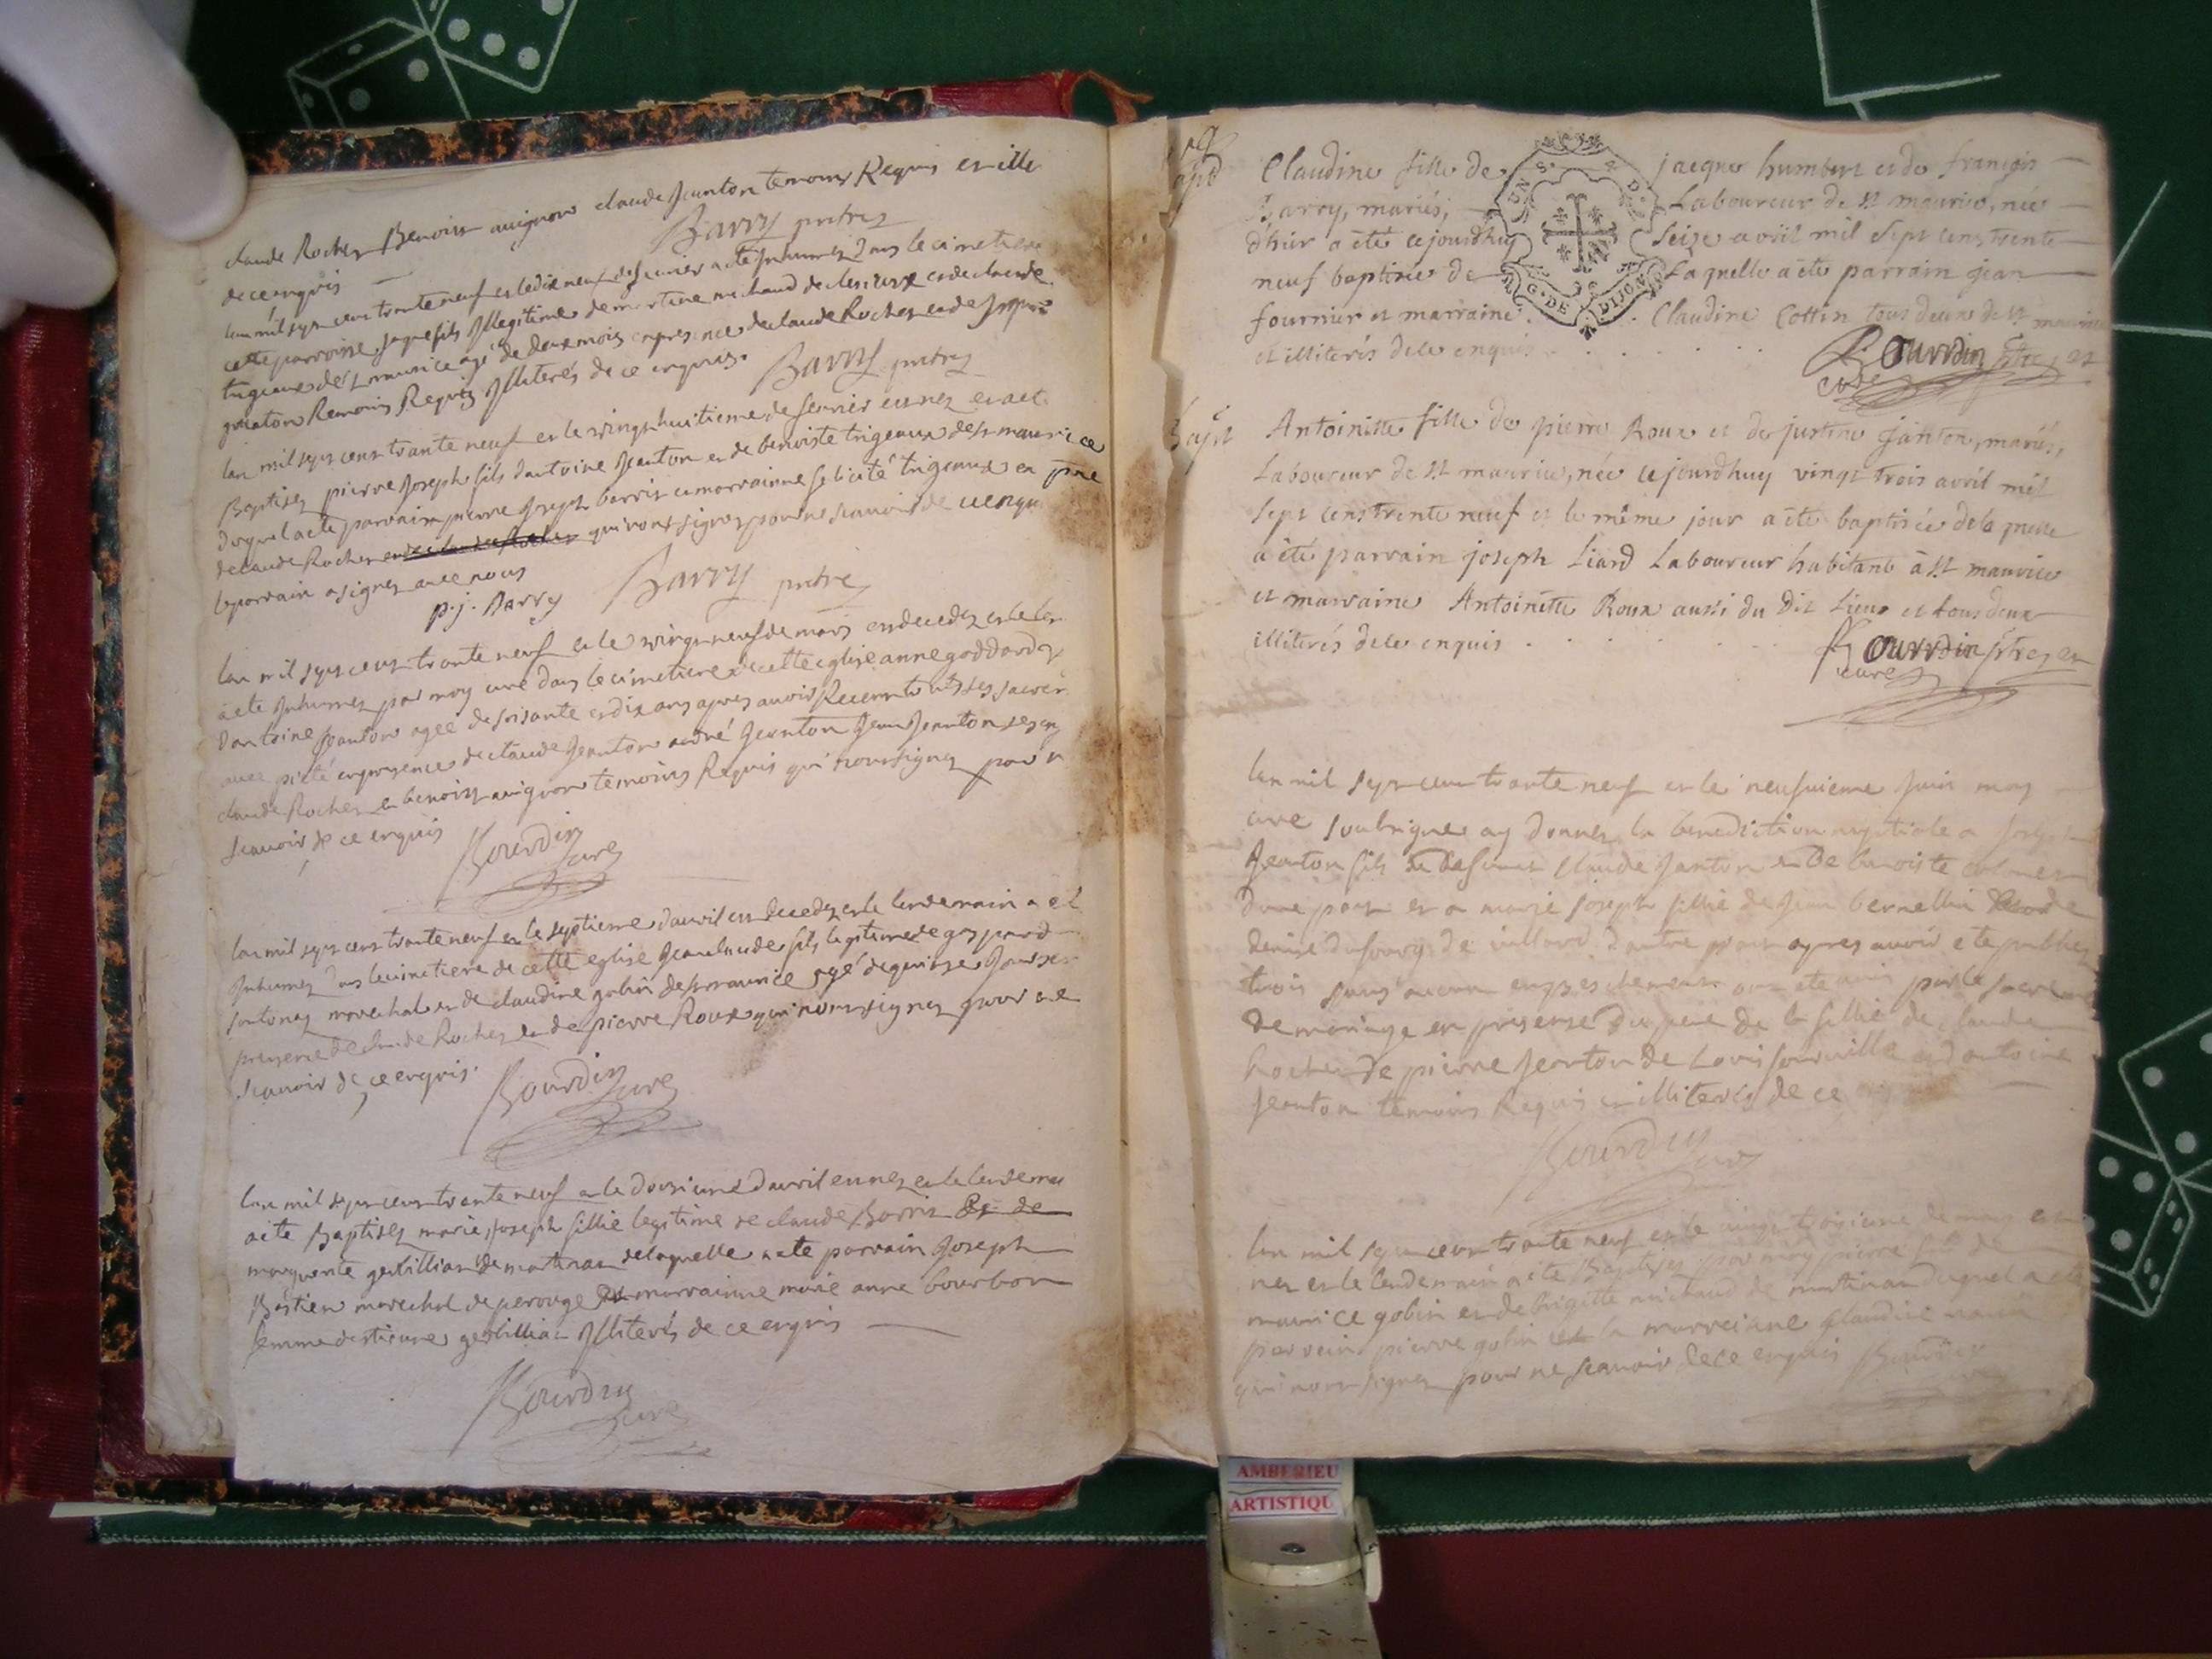 claude Rochez Benoist avignon claude Jeanton temoins Requis et ille
de ce enquis
Barry pretre
lan mil sept cens trante neuf et le dix neuf de fevrier a ete Inhumez dans le cimetiere
cette parroisse fils Illegitime de martine michaud et de claude
trigeaux de st maurice agé de deux mois en presence de claude Rochez et de
Jeanton Temoins Requis Illiterés de ce enquis.
Barry pretre
lan mil sept cens trante neuf et le vingt huitieme de fevrier est nez et a ete
Baptisez pierre Joseph fils dantoine Jeanton et de benoiste trigeaux de st maurice
duquel a ete parrain pierre Joseph barry et marrainne felicité trigeaux en pnce
de claude Rochez qui n'ont signez pour ne scavoir de ce enqu
le parrain a signez avec nous
p. j. Barry Barry pretre
lan mil sept cens trante neuf et le vingt neuf de mars est decedez et le len
a ete Inhumez par moy curé dans le cimetiere de cette eglise anne goddard
dantoine Jeanton agée de soisante et dix ans apres avoir Receu touts ses sacrem
avec pieté en presence de claude Jeanton andré Jeanton Jean Jeanton
claude Rochez et benoist avignon temoins Requis qui n'ont signez pour n
scavoir de ce enquis
Bourdin curé
lan mil sept cens trante neuf et le septieme d'avril est decedez et le lendemain a et
Inhumez dans le cimetiere de cette eglise Jean claude fils legitime de gaspard
marechal et de claudine gobin de st maurice agé de quinze Jours en
presence de claude Rochez et de pierre Roux qui n'ont signez pour ne
scavoir de ce enquis.
Bourdin curé
lan mil sept cens trante neuf et le douzieme d'avril est nez et le lendemai
a ete Baptisez marie Joseph fillie legitime de claude Borrin et de
marguerite gerbillian de martinas de laquelle a ete parrain Joseph
Bastien marechal de perouge et marrainne marie anne bourbon
femme destienne gerbillian Illiterés de ce enquis
Bourdin curé
Claudine fille de jacque humbert et de françois
Barry, mariés, Laboureur de st maurice, née
d'hier a été cejourdhuy seize avril mil sept cens trente
neuf baptisée de Laquelle a été parrain jean
fournier et marraine Claudine Cottin tous deux de st maurice
et illiterés de ce enquis
G. DE DIJON
Bourdin ptre et
curé
Bapt
Antoinette fille de pierre Roux et de justine Janton, mariés,
Laboureur de st maurice, née cejourdhuy vingt trois avril mil
sept cens trente neuf et le même jour a été baptisée de la quelle
a été parrain joseph Liard Laboureur habitant à st maurice
et marraine Antoinette Roux aussi du dit Lieux et tous deux
illiterés de ce enquis
Bourdin ptre et
curé
lan mil sept cens trante neuf et le neufvieme Juin moy
curé soubsigné ay donnez la benediction nuptiale a Joseph
Jeanton fils de defunct claude Janton et de benoiste
dune part et a marie Joseph fillie de Jean bernellin et de
denise dufourg de villard dautre part apres avoir ete publiez
trois sans aucun empeschement ont ete unis par le sacrem
de mariage en presence du pere de la fillie de claude
Rochez de pierre Jeanton de Louis et dantoine
Jeanton temoins Requis et illiterés de ce
Bourdin curé
lan mil sept cens trante neuf et le vingt troisieme de may est
nez et le lendemain a ete Baptisez par moy pierre fils de
maurice gobin et de brigitte michaud de martinas duquel a ete
parrein pierre gobin et la marreinne claudine
qui n'ont signez pour ne scavoir de ce enquis Bourdin
AMBERIEU
ARTISTIQU